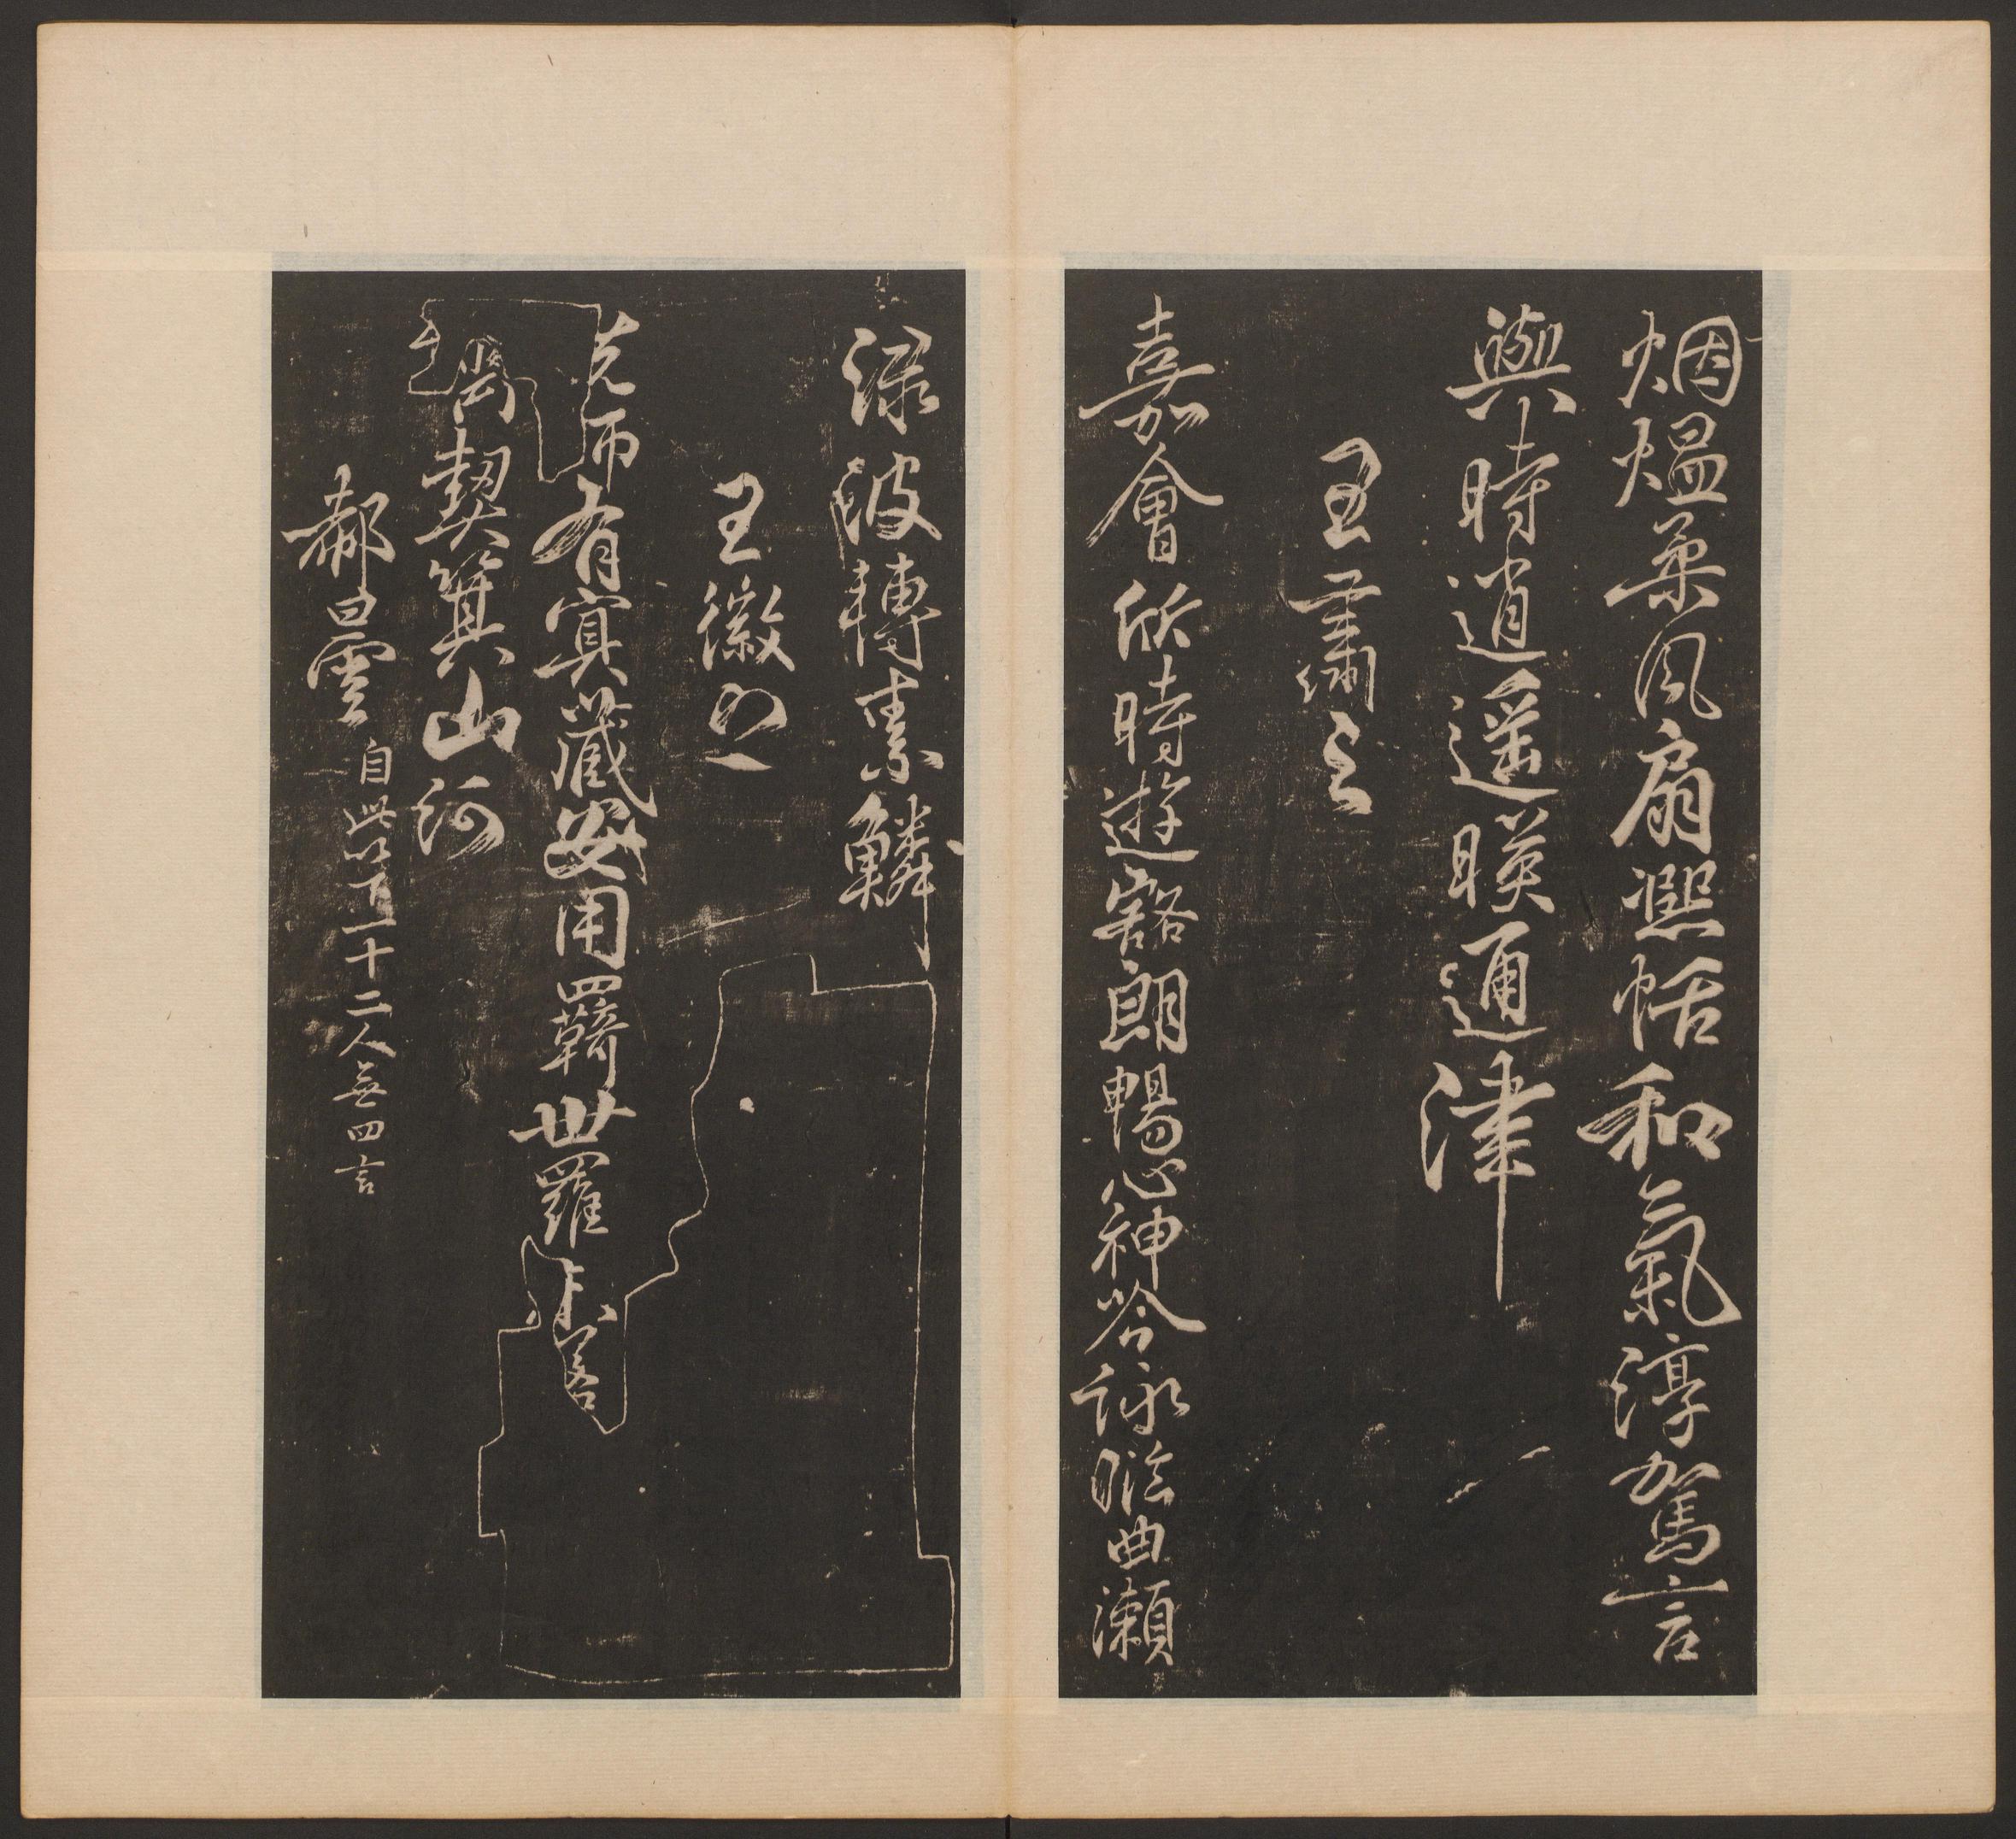 烟熅柔風扇熈恬和氣淳駕言
興時逍遥暎通津
王肅之
嘉會欣時遊豁朗暢心神吟詠臨曲瀨
渌波轉素鱗
王徽之
先師有冥藏安用羈世羅未若
齊契箕山阿
郗曇自此以下一十二人無四言